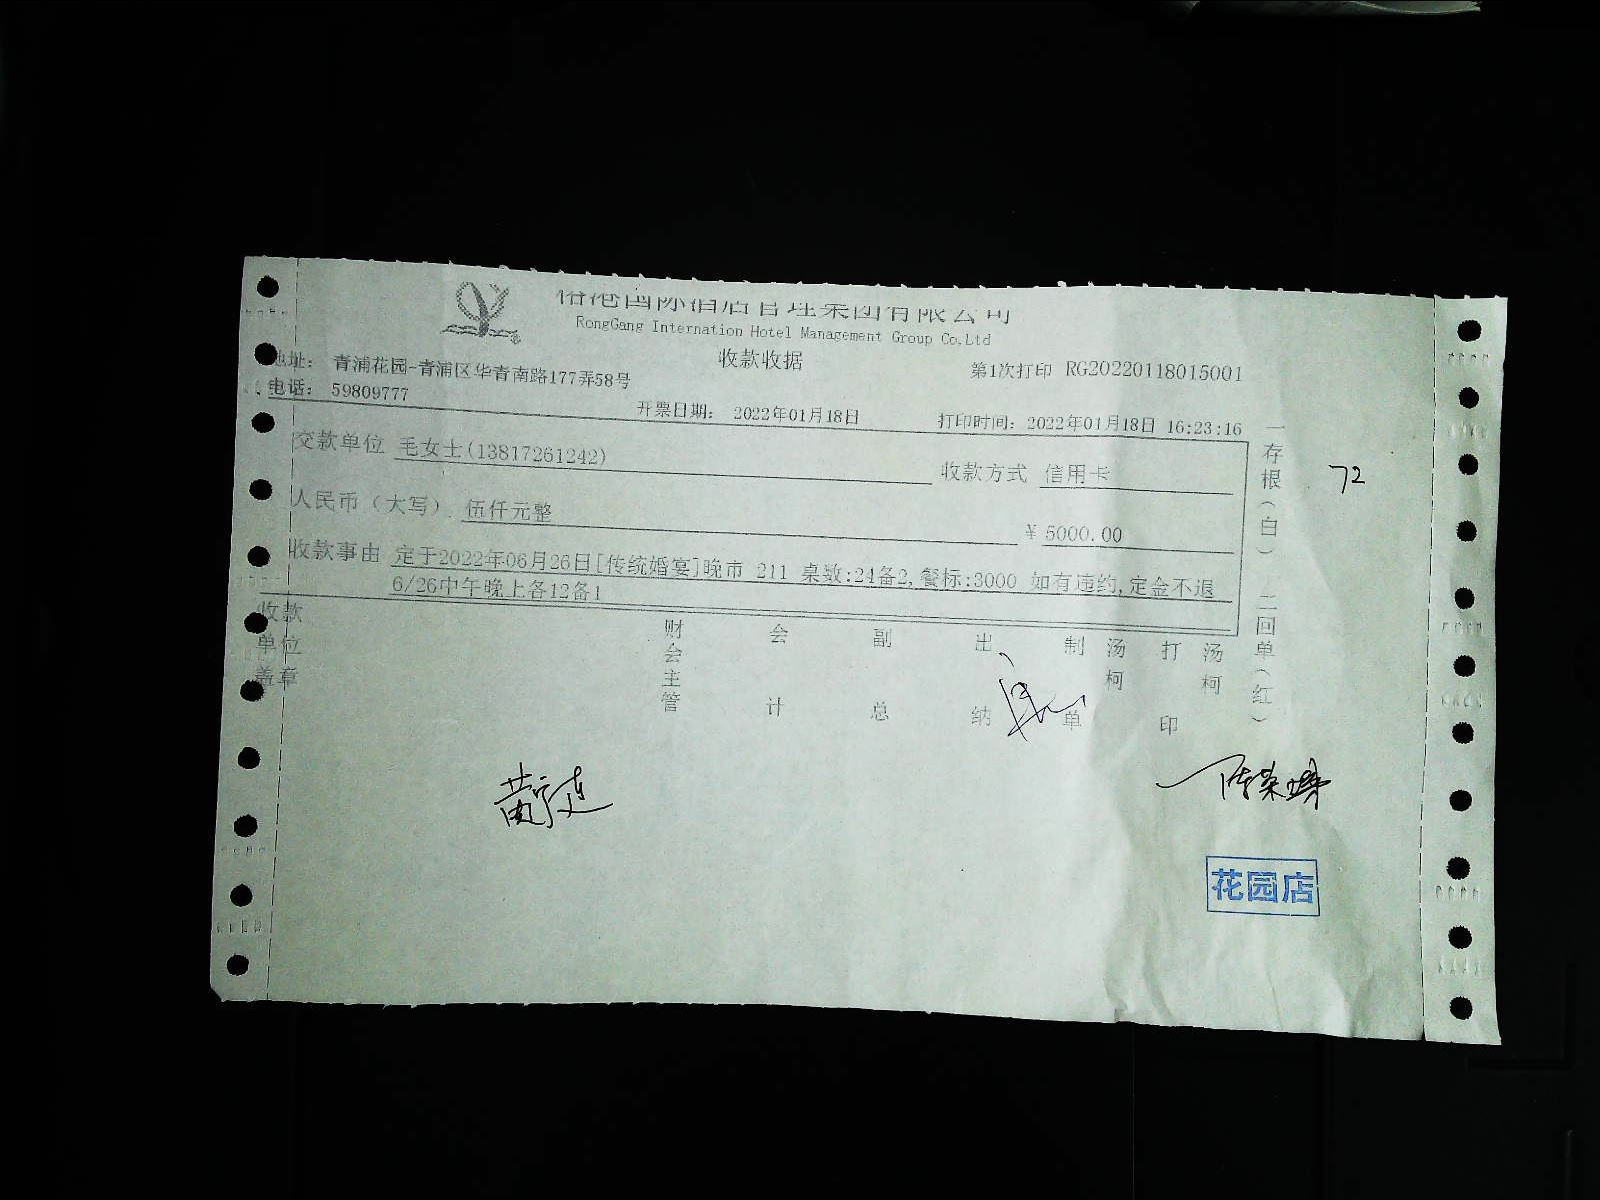 港国际酒店管理集团有限公司
RongGang Internation Hotel Management Group Co.Ltd
收款收据
地址： 青浦花园-青浦区华青南路177弄58号
第1次打印 RG20220118015001
电话： 59809777
开票日期： 2022年01月18日
打印时间：2022年01月18日 16:23:16
交款单位 毛女士(13817261242)
收款方式 信用卡
人民币（大写） 伍仟元整
¥ 5000.00
收款事由 定于2022年06月26日[传统婚宴]晚市 211 桌数:24备2,餐标:3000 如有违约,定金不退
6/26中午晚上各12备1
收款单位盖章
财会主管
会计
副总
出纳
制单
汤柯
打印
汤柯
一存根（白） 二回单（红）
72
花园店